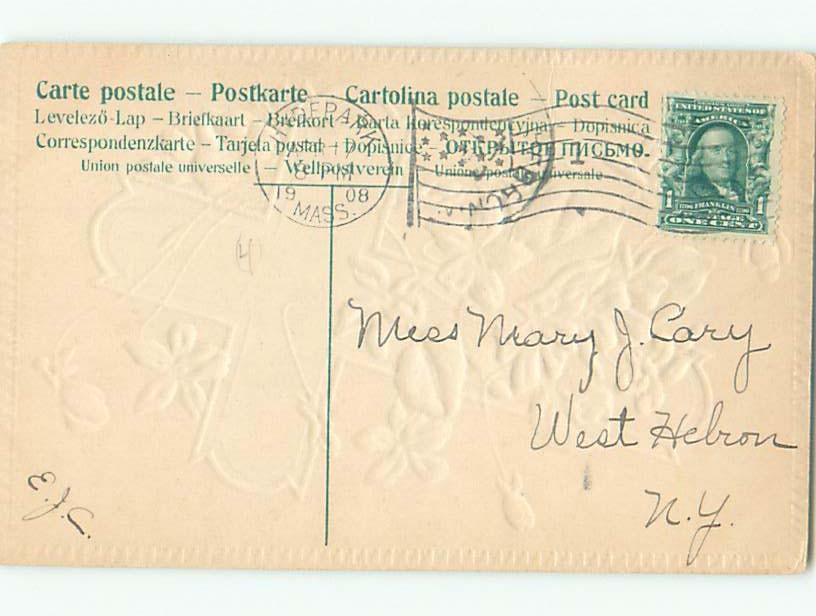 Carte postale – Postkarte – Cartolina postale – Post card
Levelező-Lap – Briefkaart – Brefkort – Karta Korespondencyjna – Dopisnica
Correspondenzkarte – Tarjeta postal – Dopisnice – ОТКРЫТОЕ ПИСЬМО.
Union postale universelle – Weltpostverein – Unione postale universale
HYDE PARK
19 08
MASS.
UNITED STATES OF
AMERICA
FRANKLIN
1 1
ONE CENT
(4)
Miss Mary J. Cary
West Hebron
N.Y.
E.J.